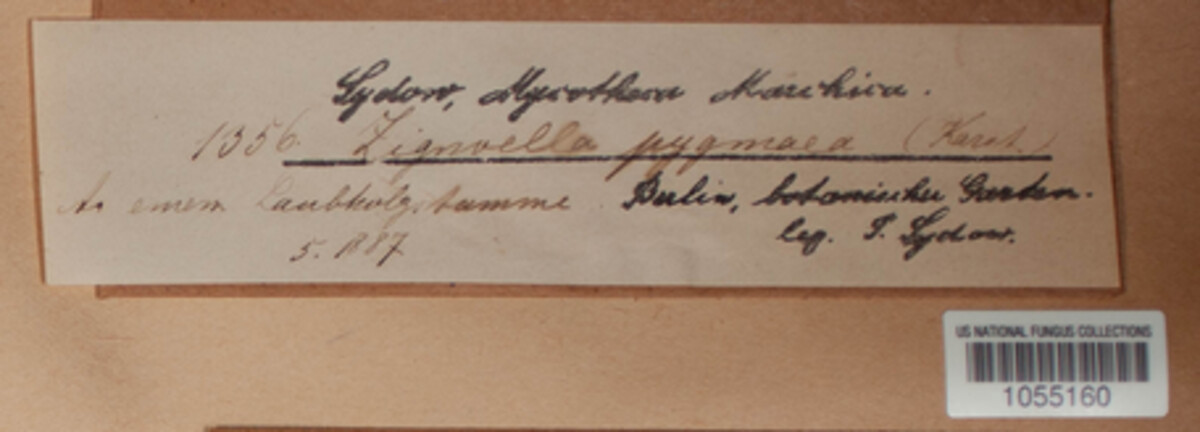 Sydow, Mycotheca Marchica.
1356. Zignoella pygmaea (Karst.)
An einem Laubholzstamme. Berlin, botanischer Garten.
5. 1887 leg. P. Sydow.
US NATIONAL FUNGUS COLLECTIONS
1055160